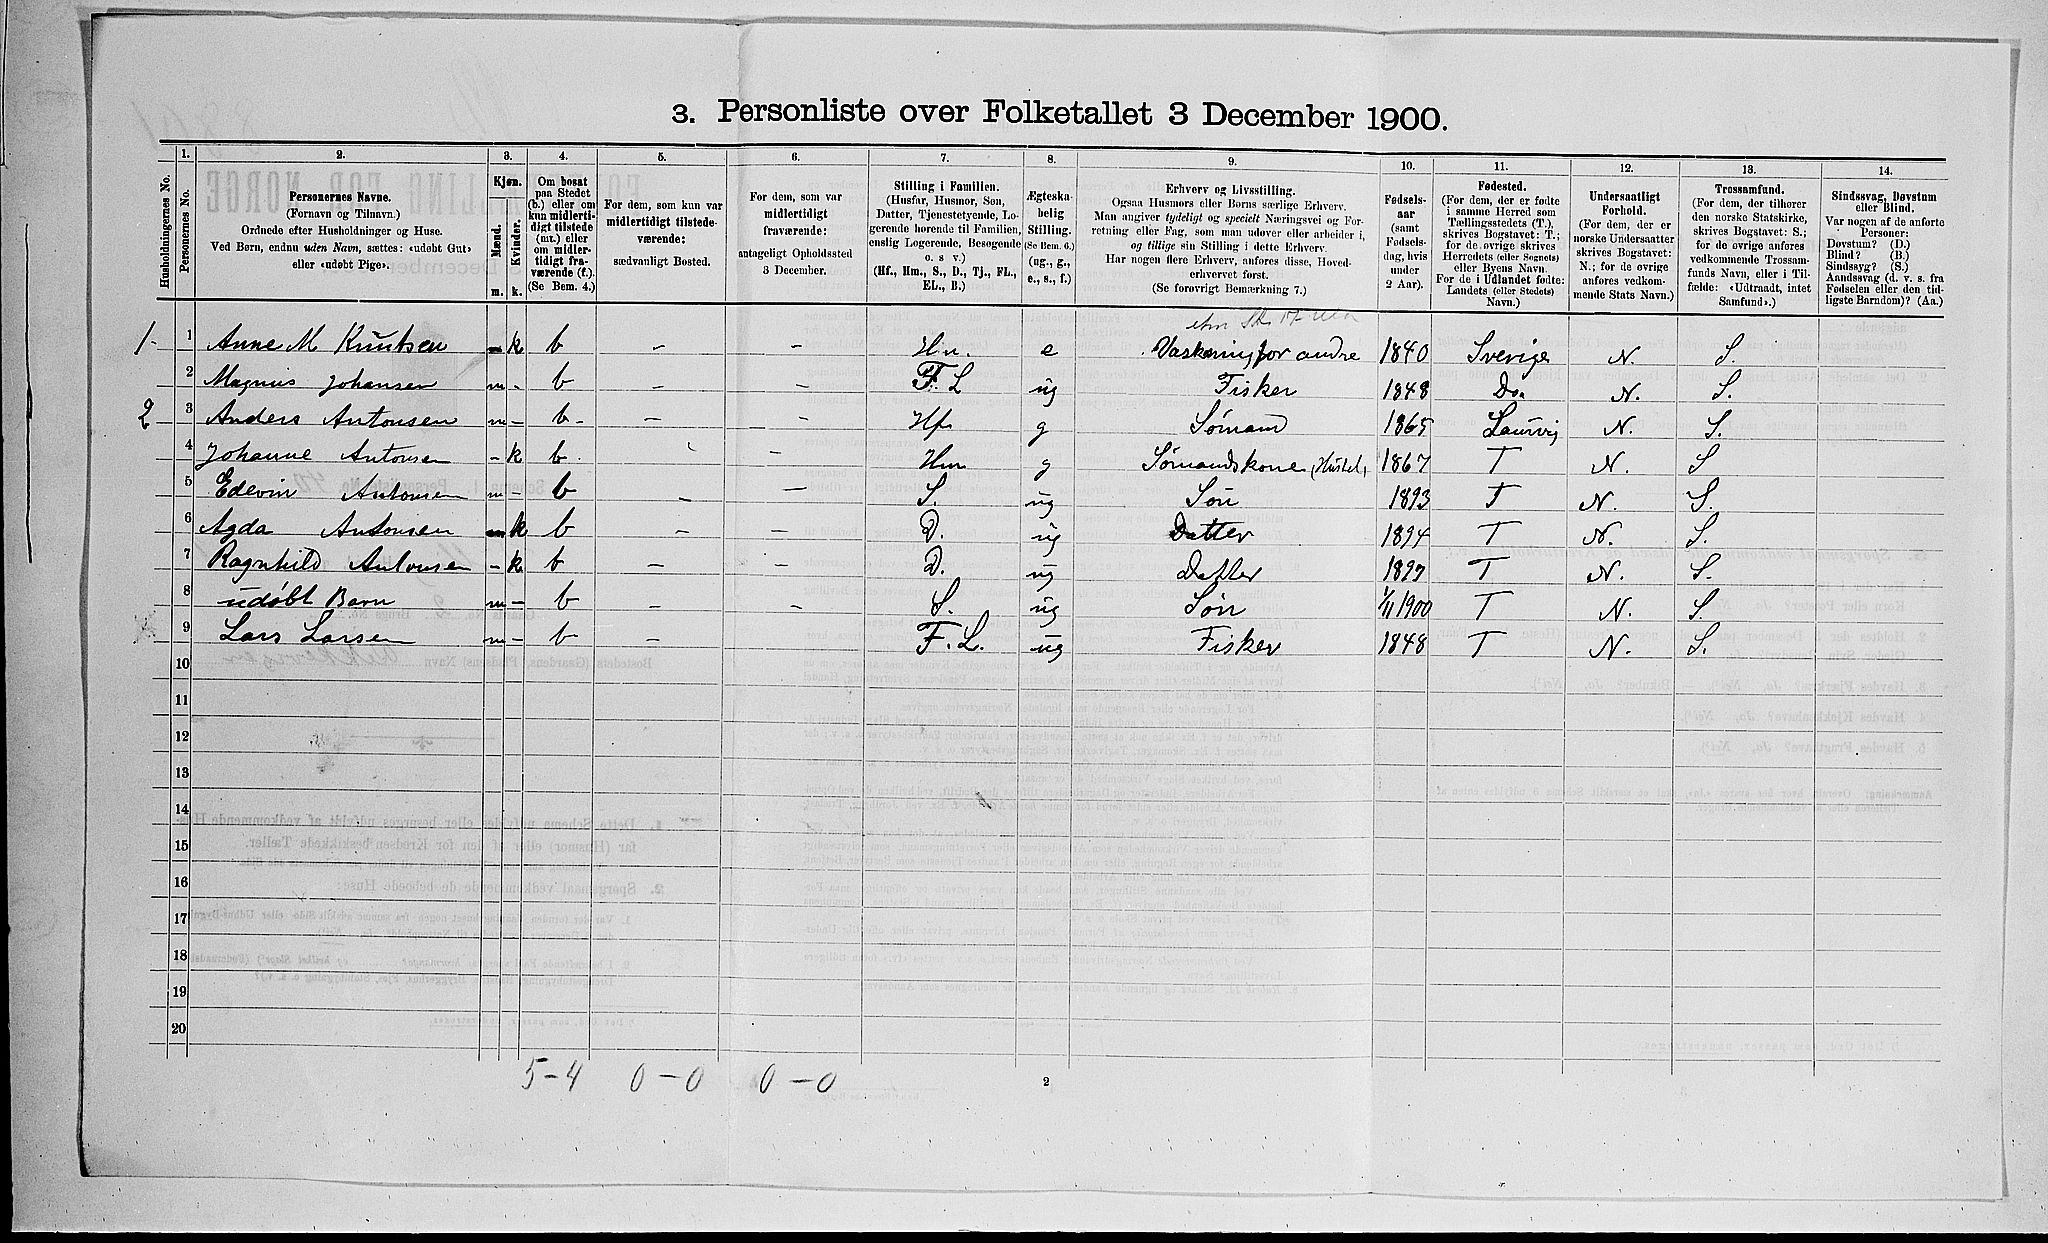 3. Personliste over Folketallet 3 December 1900.
Husholdningernes No.
1.
Personernes No.
2.
Personernes Navne.
(Fornavn og Tilnavn.)
Ordnede efter Husholdninger og Huse.
Ved Børn, endnu uden Navn, sættes: «udøbt Gut»
eller «udøbt Pige».
3.
Kjøn.
Mænd.
Kvinder.
m. k.
4.
Om bosat
paa Stedet
(b.) eller om
kun midlerti-
digt tilstede
(mt.) eller om
midler-
tidigt fra-
værende (f.).
(Se Bem. 4.)
5.
For dem, som kun var
midlertidigt tilstede-
værende:
sædvanligt Bosted.
6.
For dem, som var
midlertidigt
fraværende:
antageligt Opholdssted
3 December.
7.
Stilling i Familien.
(Husfar, Husmor, Søn,
Datter, Tjenestetyende, Lo-
gerende hørende til Familien,
enslig Logerende, Besøgende
o. s. v.)
(Hf., Hm., S., D., Tj., FL.,
EL., B.)
8.
Ægteska-
belig
Stilling.
(Se Bem. 6.)
(ug., g.,
e., s., f.)
9.
Erhverv og Livsstilling.
Ogsaa Husmors eller Børns særlige Erhverv.
Man angiver tydeligt og specielt Næringsvei og For-
retning eller Fag, som man udøver eller arbeider i,
og tillige sin Stilling i dette Erhverv.
Har nogen flere Erhverv, anføres disse, Hoved-
erhvervet først.
(Se forøvrigt Bemærkning 7.)
10.
Fødsels-
aar
(samt
Fødsels-
dag, hvis
under
2 Aar).
11.
Fødested.
(For dem, der er fødte
i samme Herred som
Tællingsstedets (T.),
skrives Bogstavet: T.;
for de øvrige skrives
Herredets (eller Sognets)
eller Byens Navn.
For de i Udlandet fødte:
Landets (eller Stedets)
Navn.)
12.
Undersaatligt
Forhold.
(For dem, der er
norske Undersaatter
skrives Bogstavet:
N.; for de øvrige
anføres vedkom-
mende Stats Navn.)
13.
Trossamfund.
(For dem, der tilhører
den norske Statskirke,
skrives Bogstavet: S.;
for de øvrige anføres
vedkommende Trossam-
funds Navn, eller i Til-
fælde: «Udtraadt, intet
Samfund».)
14.
Sindssvag, Døvstum
eller Blind.
Var nogen af de anførte
Personer:
Døvstum? (D.)
Blind? (B.)
Sindssyg? (S.)
Aandssvag (d. v. s. fra
Fødselen eller den tid-
ligste Barndom)? (Aa.)
1- 1 Anne M Knutsen - k b - Hm. e Vaskning for andre 1840 Sverige N. S.
2 Magnus Johansen m - b - - F. L ug Fisker 1848 Do. N. S.
2 3 Anders Antonsen m - b - - - Hf. g Sømand 1865 Laurvig N. S.
4 Johanne Antonsen - k b - Hm g Sømandskone 1867 T N. S
5 Edevin Antonsen m - b - - S. ug Søn 1893 T N. S.
6 Agda Antonsen k b - - D. ug Datter 1894 T N. S.
7 Ragnhild Antonsen - k b - - D. ug Datter 1897 T N. S.
8 udøbt Barn m - b - - S. ug Søn 1/11 1900 T N. S.
9 Lars Larsen m - b - F. L. ug Fisker 1848 T N. S.
10
11
12
13
14
15
16
17
18
19
20
5-4 0-0 0-0
2